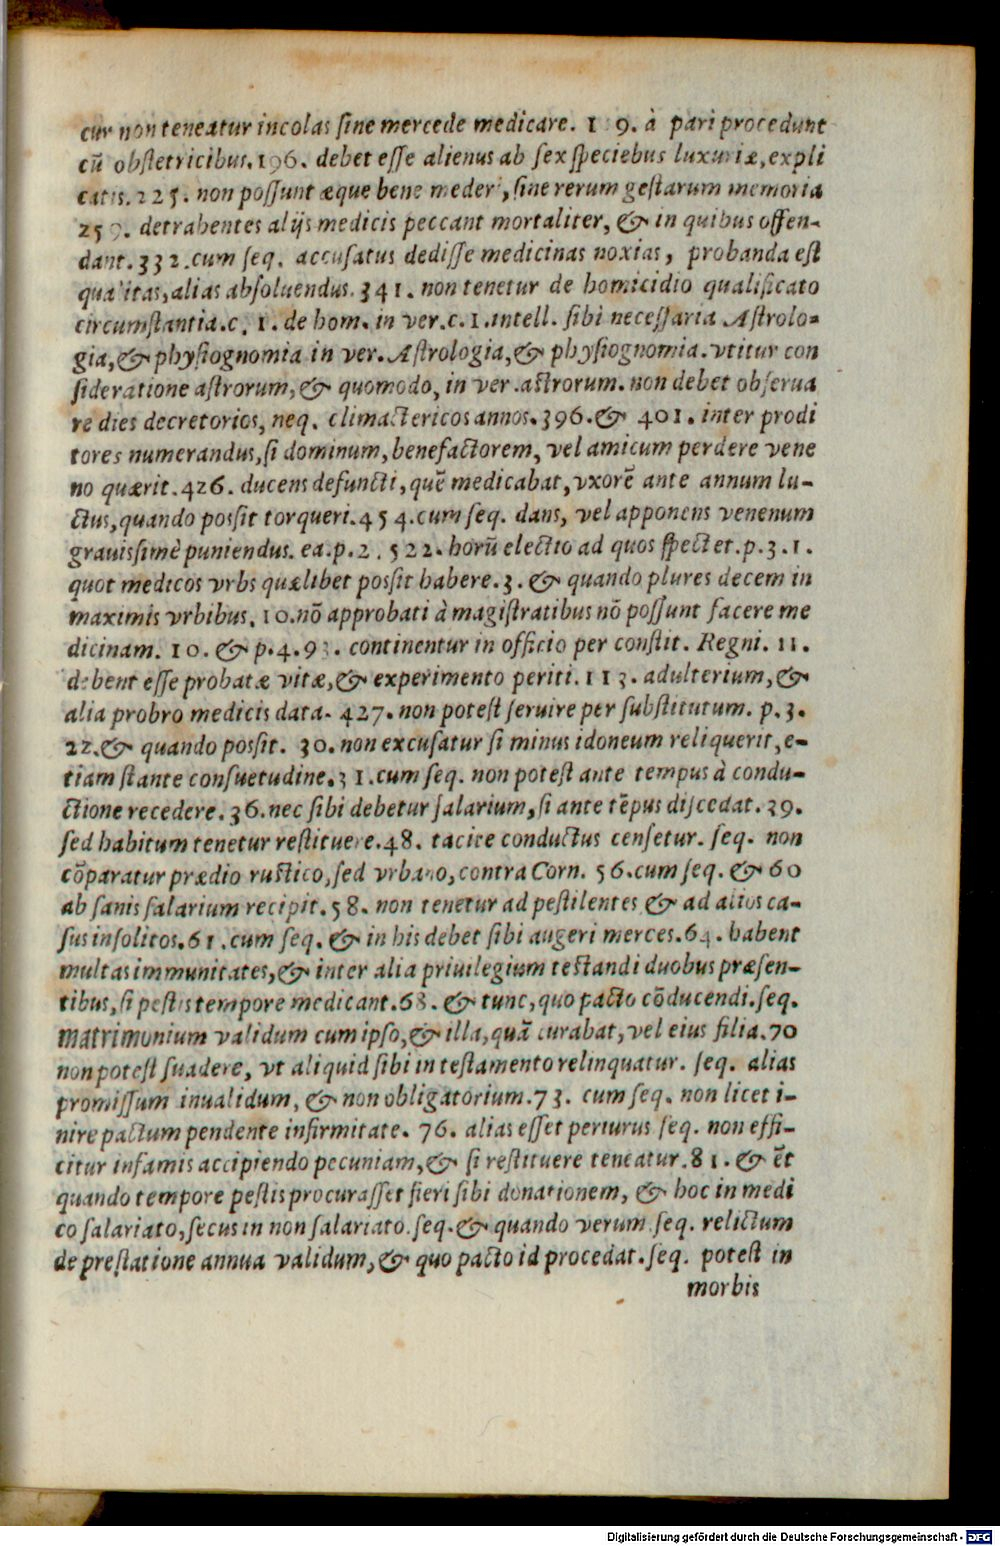 cur non teneatur incolas sine mercede medicare. 1 9. à pari procedunt
cū obstetricibus. 196. debet esse alienus ab sex speciebus luxuriæ, expli
catis. 225. non possunt æque bene mederi, sine rerum gestarum memoria
259. detrahentes alijs medicis peccant mortaliter, & in quibus offen-
dant. 332. cum seq. accusatus dedisse medicinas noxias, probanda est
qualitas, alias absoluendus. 341. non tenetur de homicidio qualificato
circumstantia. c. 1. de hom. in ver. c. 1. intell. sibi necessaria Astrolo-
gia, & physiognomia in ver. Astrologia, & physiognomia. vtitur con
sideratione astrorum, & quomodo, in ver. astrorum. non debet obserua
re dies decretorios, neq. climactericos annos. 396. & 401. inter prodi
tores numerandus, si dominum, benefactorem, vel amicum perdere vene
no quærit. 426. ducens defuncti, quē medicabat, vxorē ante annum lu-
ctus, quando possit torqueri. 454. cum seq. dans, vel apponens venenum
grauissimè puniendus. ea. p. 2. 522. horū electio ad quos spectet. p. 3. 1.
quot medicos vrbs quælibet possit habere. 3. & quando plures decem in
maximis vrbibus. 10. nō approbati à magistratibus nō possunt facere me
dicinam. 10. & p. 4. 93. continentur in officio per constit. Regni. 11.
debent esse probatæ vitæ, & experimento periti. 113. adulterium, &
alia probro medicis data. 427. non potest seruire per substitutum. p. 3.
22. & quando possit. 30. non excusatur si minus idoneum reliquerit, e-
tiam stante consuetudine. 31. cum seq. non potest ante tempus à condu-
ctione recedere. 36. nec sibi debetur salarium, si ante tēpus discedat. 39.
sed habitum tenetur restituere. 48. tacite conductus censetur. seq. non
cōparatur prædio rustico, sed vrbano, contra Corn. 56. cum seq. & 60
ab sanis salarium recipit. 58. non tenetur ad pestilentes & ad alios ca-
sus insolitos. 61. cum seq. & in his debet sibi augeri merces. 64. habent
multas immunitates, & inter alia priuilegium testandi duobus præsen-
tibus, si pestis tempore medicant. 68. & tunc, quo pacto cōducendi. seq.
matrimonium validum cum ipso, & illa, quā curabat, vel eius filia. 70
non potest suadere, vt aliquid sibi in testamento relinquatur. seq. alias
promissum inualidum, & non obligatorium. 73. cum seq. non licet i-
nire pactum pendente infirmitate. 76. alias esset periurus seq. non effi-
citur infamis accipiendo pecuniam, & si restituere teneatur. 81. & ēt
quando tempore pestis procurasset fieri sibi donationem, & hoc in medi
co salariato, secus in non salariato. seq. & quando verum seq. relictum
de prestatione annua validum, & quo pacto id procedat. seq. potest in
morbis
Digitalisierung gefördert durch die Deutsche Forschungsgemeinschaft - DFG